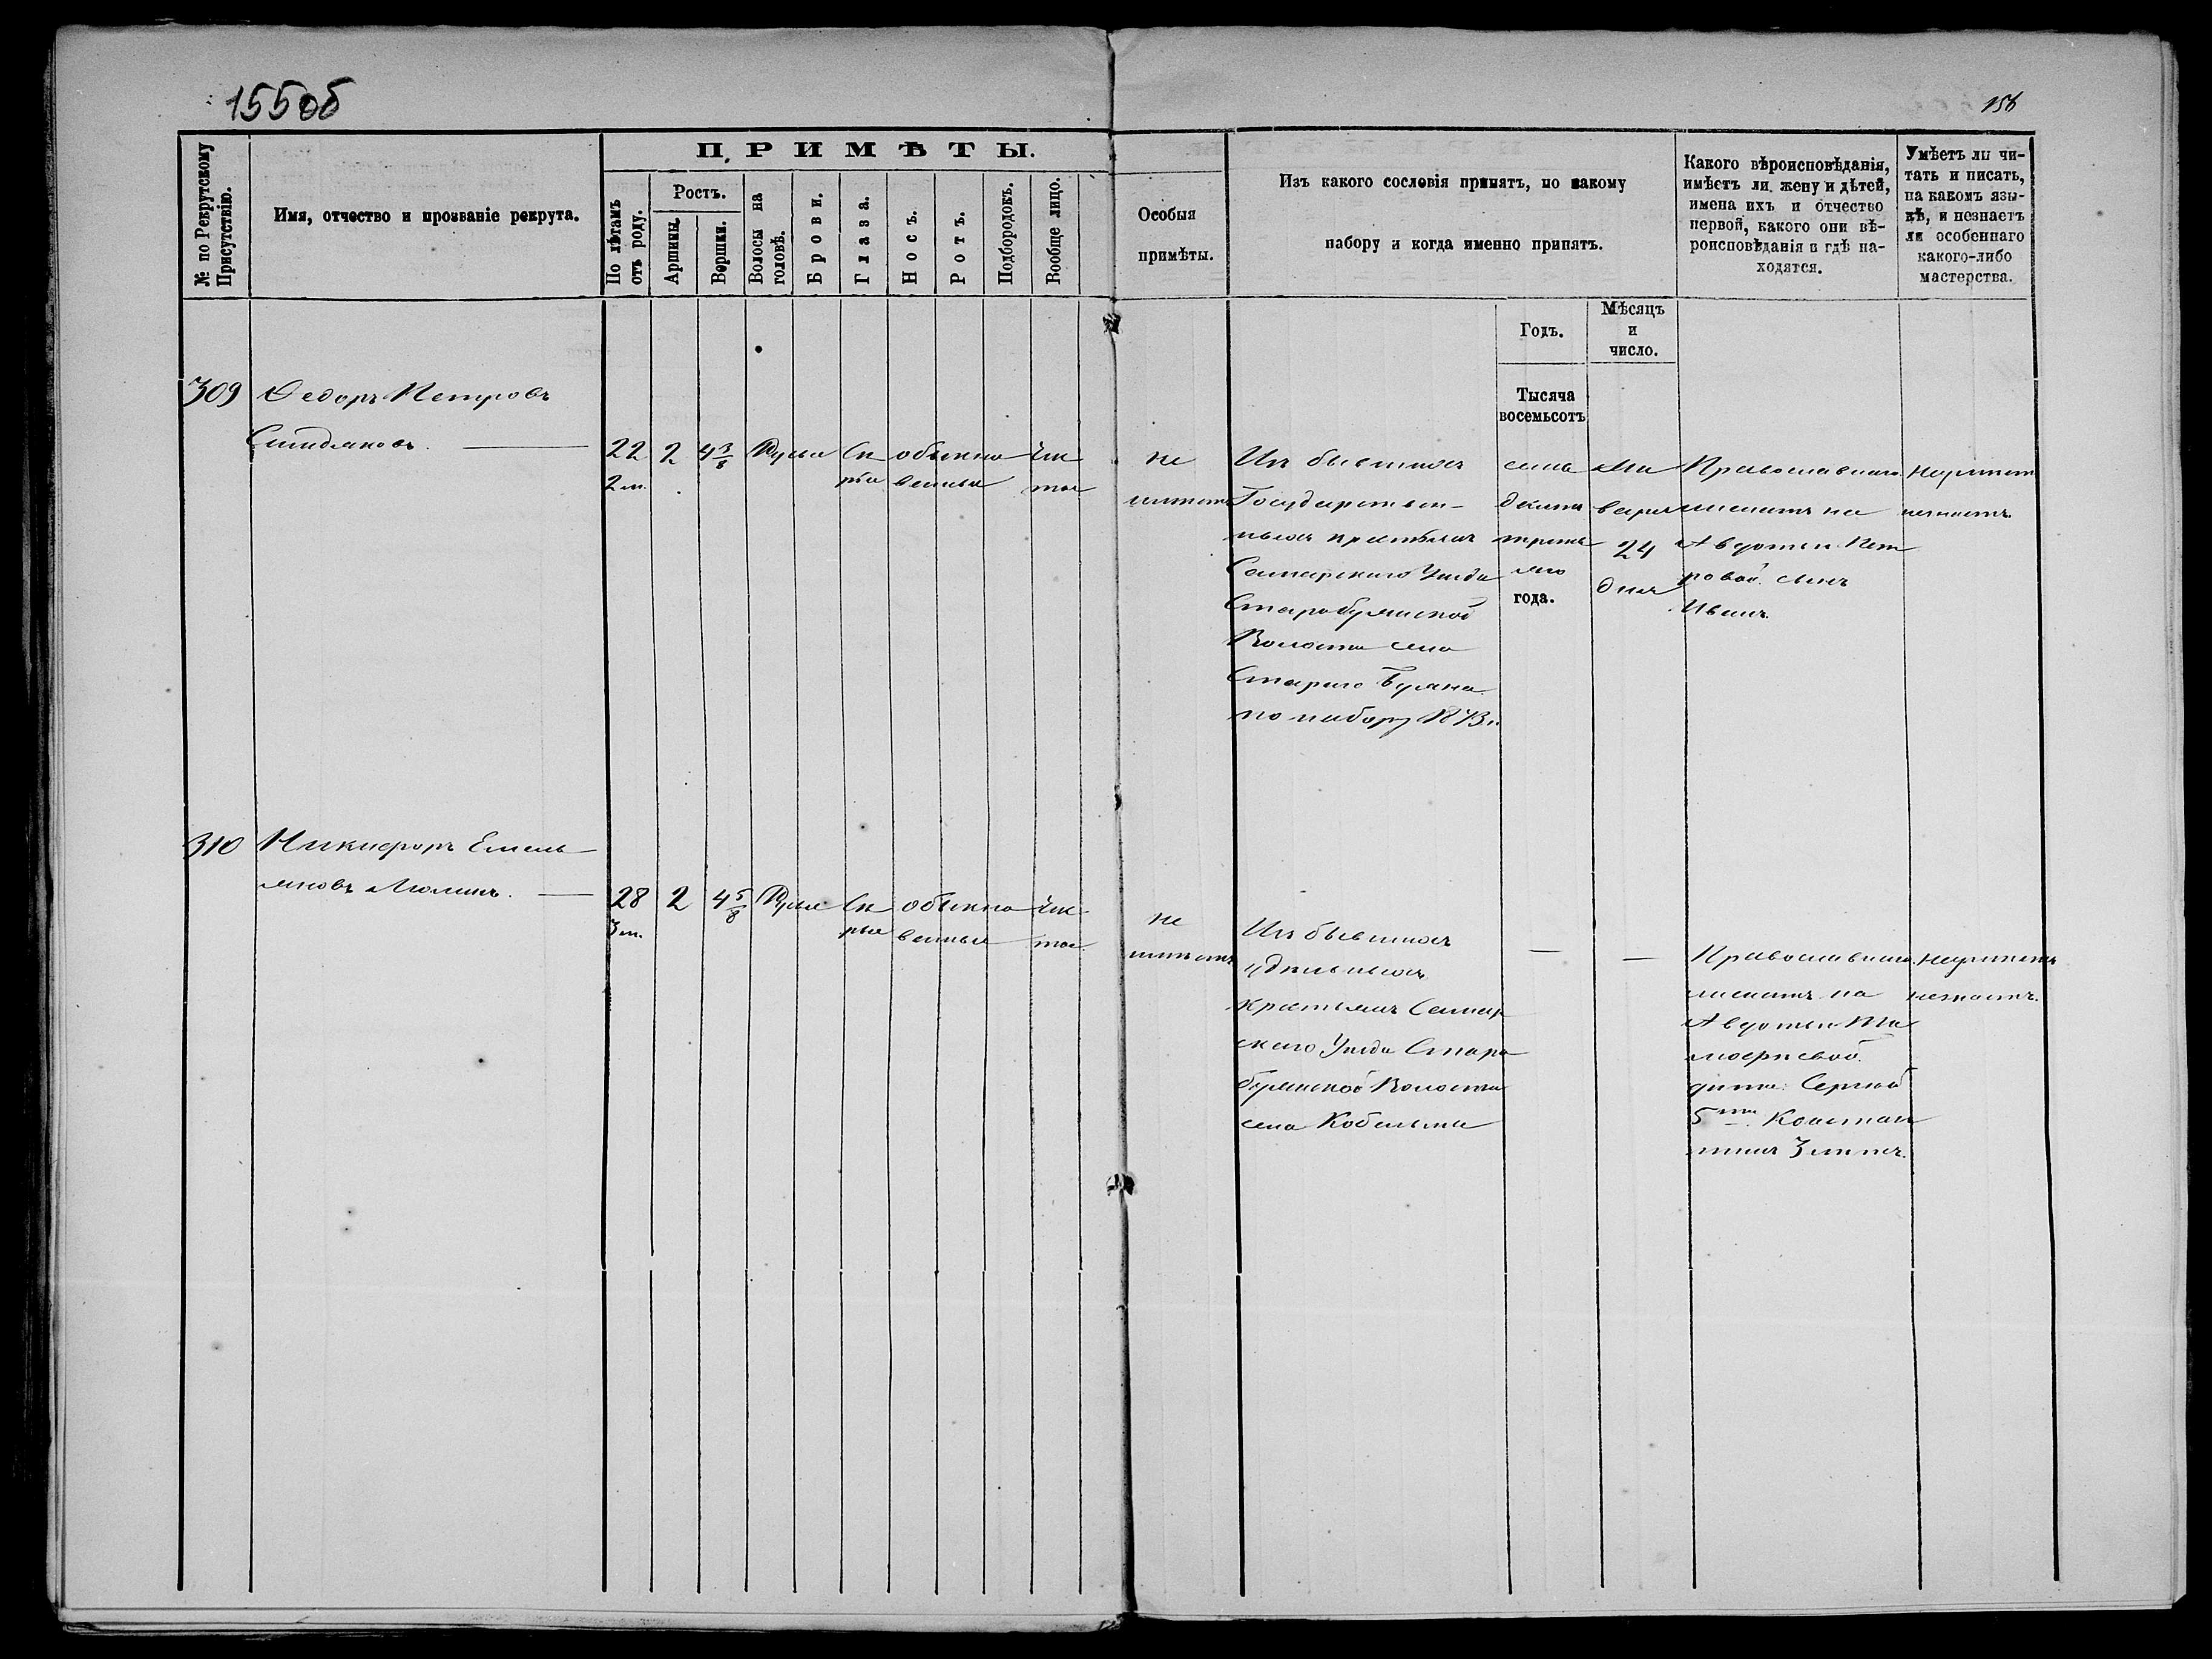 155об
156
№ по Рекрутскому Присутствію.
Имя, отчество и прозваніе рекрута.
ПРИМѢТЫ.
По лѣтамъ отъ роду.
Ростъ.
Аршины.
Вершки.
Волосы на головѣ.
Брови.
Глаза.
Носъ.
Ротъ.
Подбородокъ.
Вообще лицо.
Особыя
примѣты.
Изъ какого сословія принятъ, по какому
набору и когда именно принятъ.
Какого вѣроисповѣданія,
имѣетъ ли жену и дѣтей,
имена ихъ и отчество
первой, какого они вѣ-
роисповѣданія и гдѣ на-
ходятся.
Умѣетъ ли чи-
тать и писать,
на какомъ язы-
кѣ, и незнаетъ
ли особеннаго
какого-либо
мастерства.
Годъ.
Мѣсяцъ
и
число.
Тысяча
восемьсотъ
309
Федоръ Петровъ
22 2 4 3/8 Русые Сѣ обыкно чис
2 м. рые венные тое
не
имѣетъ
Изъ бывшихъ
Государствен-
ныхъ крестьянъ
Самарскаго Уѣзда
Старобуянской
Волости села
Стараго Буяна
по набору 1873 г.
семь
десятъ
треть
яго
года.
Ян
варя
24
дня
Православнаго
женатъ на
Авдотьи Пет
ровой. сынъ
Иванъ.
неумѣетъ
незнаетъ.
310
Никифоръ Емель
яновъ
28 2 4 5/8 Русые Сѣ обыкно чис-
3 м. рые венные тое.
не
имѣетъ
Изъ бывшихъ
удѣльныхъ
крестьянъ Самар
скаго Уѣзда Старо
буянской Волости
села Кобельма
Православнаго
женатъ на
Авдотьи Ти
моѳеевой.
дѣти: Сергей
5ти Констан
тинъ 3 лѣтъ.
неумѣетъ
незнаетъ.